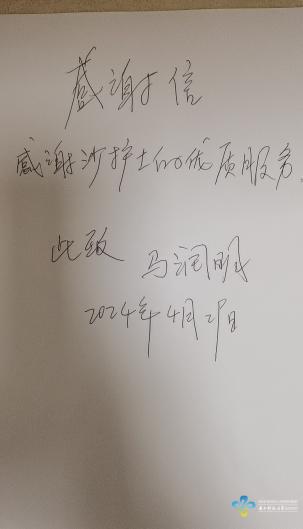 感谢信
感谢沙护士的优质服务.
此致 马润明
2024年4月29日